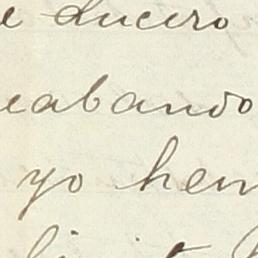 e Lucero
eabando
yo hem